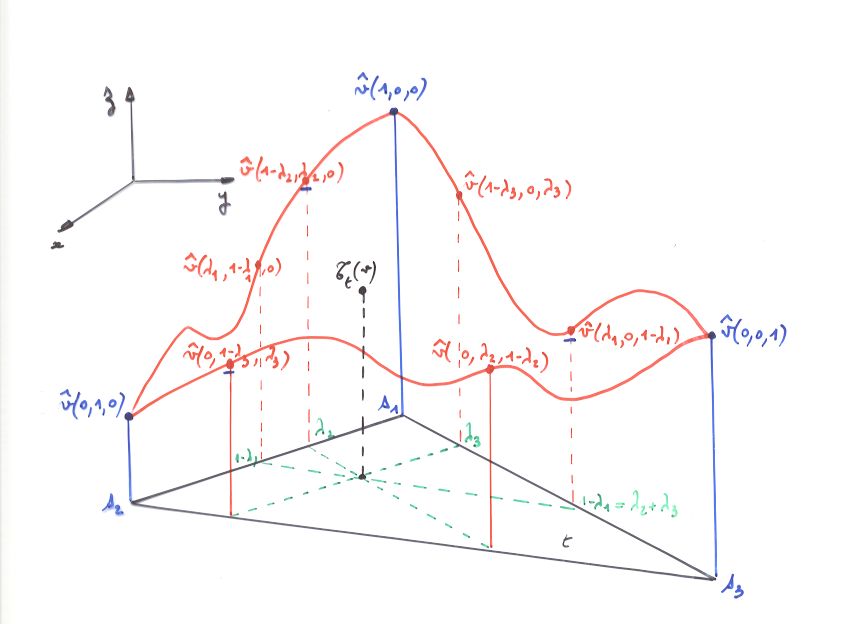 v̂(1,0,0)
z
v̂(1-λ₂,λ₂,0)
v̂(1-λ₃,0,λ₃)
y
x
v̂(λ₁,1-λ₁,0)
𝒯ₜ(v)
v̂(λ₁,0,1-λ₁)
v̂(0,0,1)
v̂(0,1-λ₃,λ₃)
v̂(0,λ₂,1-λ₂)
v̂(0,1,0)
s₁
λ₂
λ₃
1-λ₁
s₂
1-λ₁=λ₂+λ₃
t
s₃